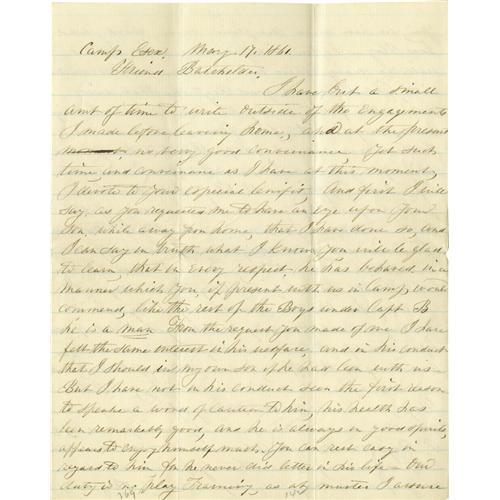 Camp Essex, May 17, 1861
Friend Batchelder,
I have but a small
amt of time to write outside of the Engagements
I made before leaving home, and at the present
moment, no very good convenience Yet such
time and convenience as I have at this moment,
I devote to your especial benefit, And first I will
say, as you requested me to have an eye upon your
Son, while away from home, that I have done so, and
I can say in truth what I know you will be glad
to learn, that in every respect he has behaved in a
manner which you, if present with us in Camp, would
commend, like the rest of the Boys under Capt B
he is a man From the request you made of me I have
felt the same interest in his welfare, and in his conduct
that I should in my own son if he had been with us
But I have not in his conduct seen the first reason
to speake a word of caution to him, his health has
been remarkably good, and he is always in good spirits,
appears to enjoy himself much. You can rest easy in
regard to him for he never did better in his life – Our
duty is no play Training, as at muster I assure